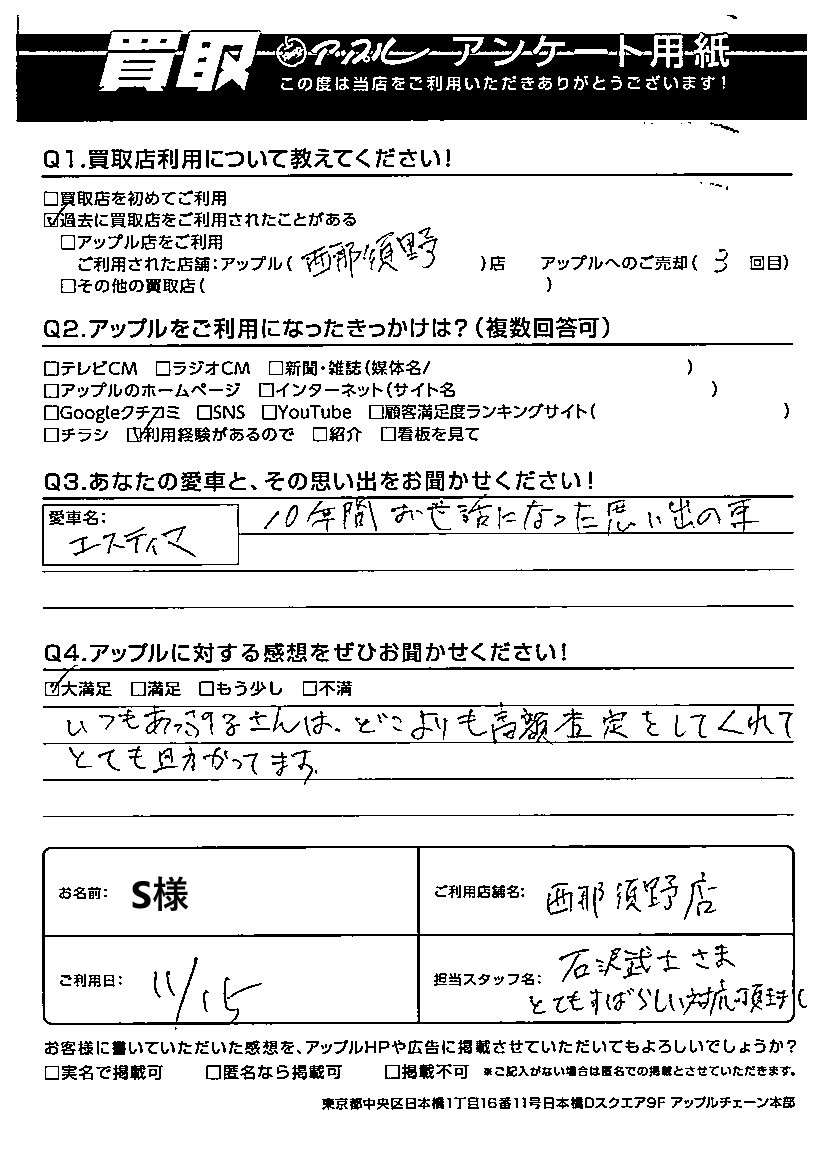 買取 アップル アンケート用紙
この度は当店をご利用いただきありがとうございます!
Q1.買取店利用について教えてください!
□買取店を初めてご利用
☑過去に買取店をご利用されたことがある
□アップル店をご利用
ご利用された店舗:アップル( 西那須野 )店 アップルへのご売却( 3 回目)
□その他の買取店( )
Q2.アップルをご利用になったきっかけは?(複数回答可)
□テレビCM □ラジオCM □新聞・雑誌(媒体名/ )
□アップルのホームページ □インターネット(サイト名 )
□Googleクチコミ □SNS □YouTube □顧客満足度ランキングサイト( )
□チラシ ☑利用経験があるので □紹介 □看板を見て
Q3.あなたの愛車と、その思い出をお聞かせください!
愛車名: 10年間 お世話になった思い出の車
エスティマ
Q4.アップルに対する感想をぜひお聞かせください!
☑大満足 □満足 □もう少し □不満
いつもあっぷるさんは、どこよりも高額査定をしてくれて
とても助かってます。
お名前: S様 ご利用店舗名: 西那須野店
ご利用日: 11/15 担当スタッフ名: 石沢武士さま
とてもすばらしい対応
お客様に書いていただいた感想を、アップルHPや広告に掲載させていただいてもよろしいでしょうか?
□実名で掲載可 □匿名なら掲載可 □掲載不可 *ご記入がない場合は匿名での掲載とさせていただきます。
東京都中央区日本橋1丁目16番11号日本橋Dスクエア9F アップルチェーン本部